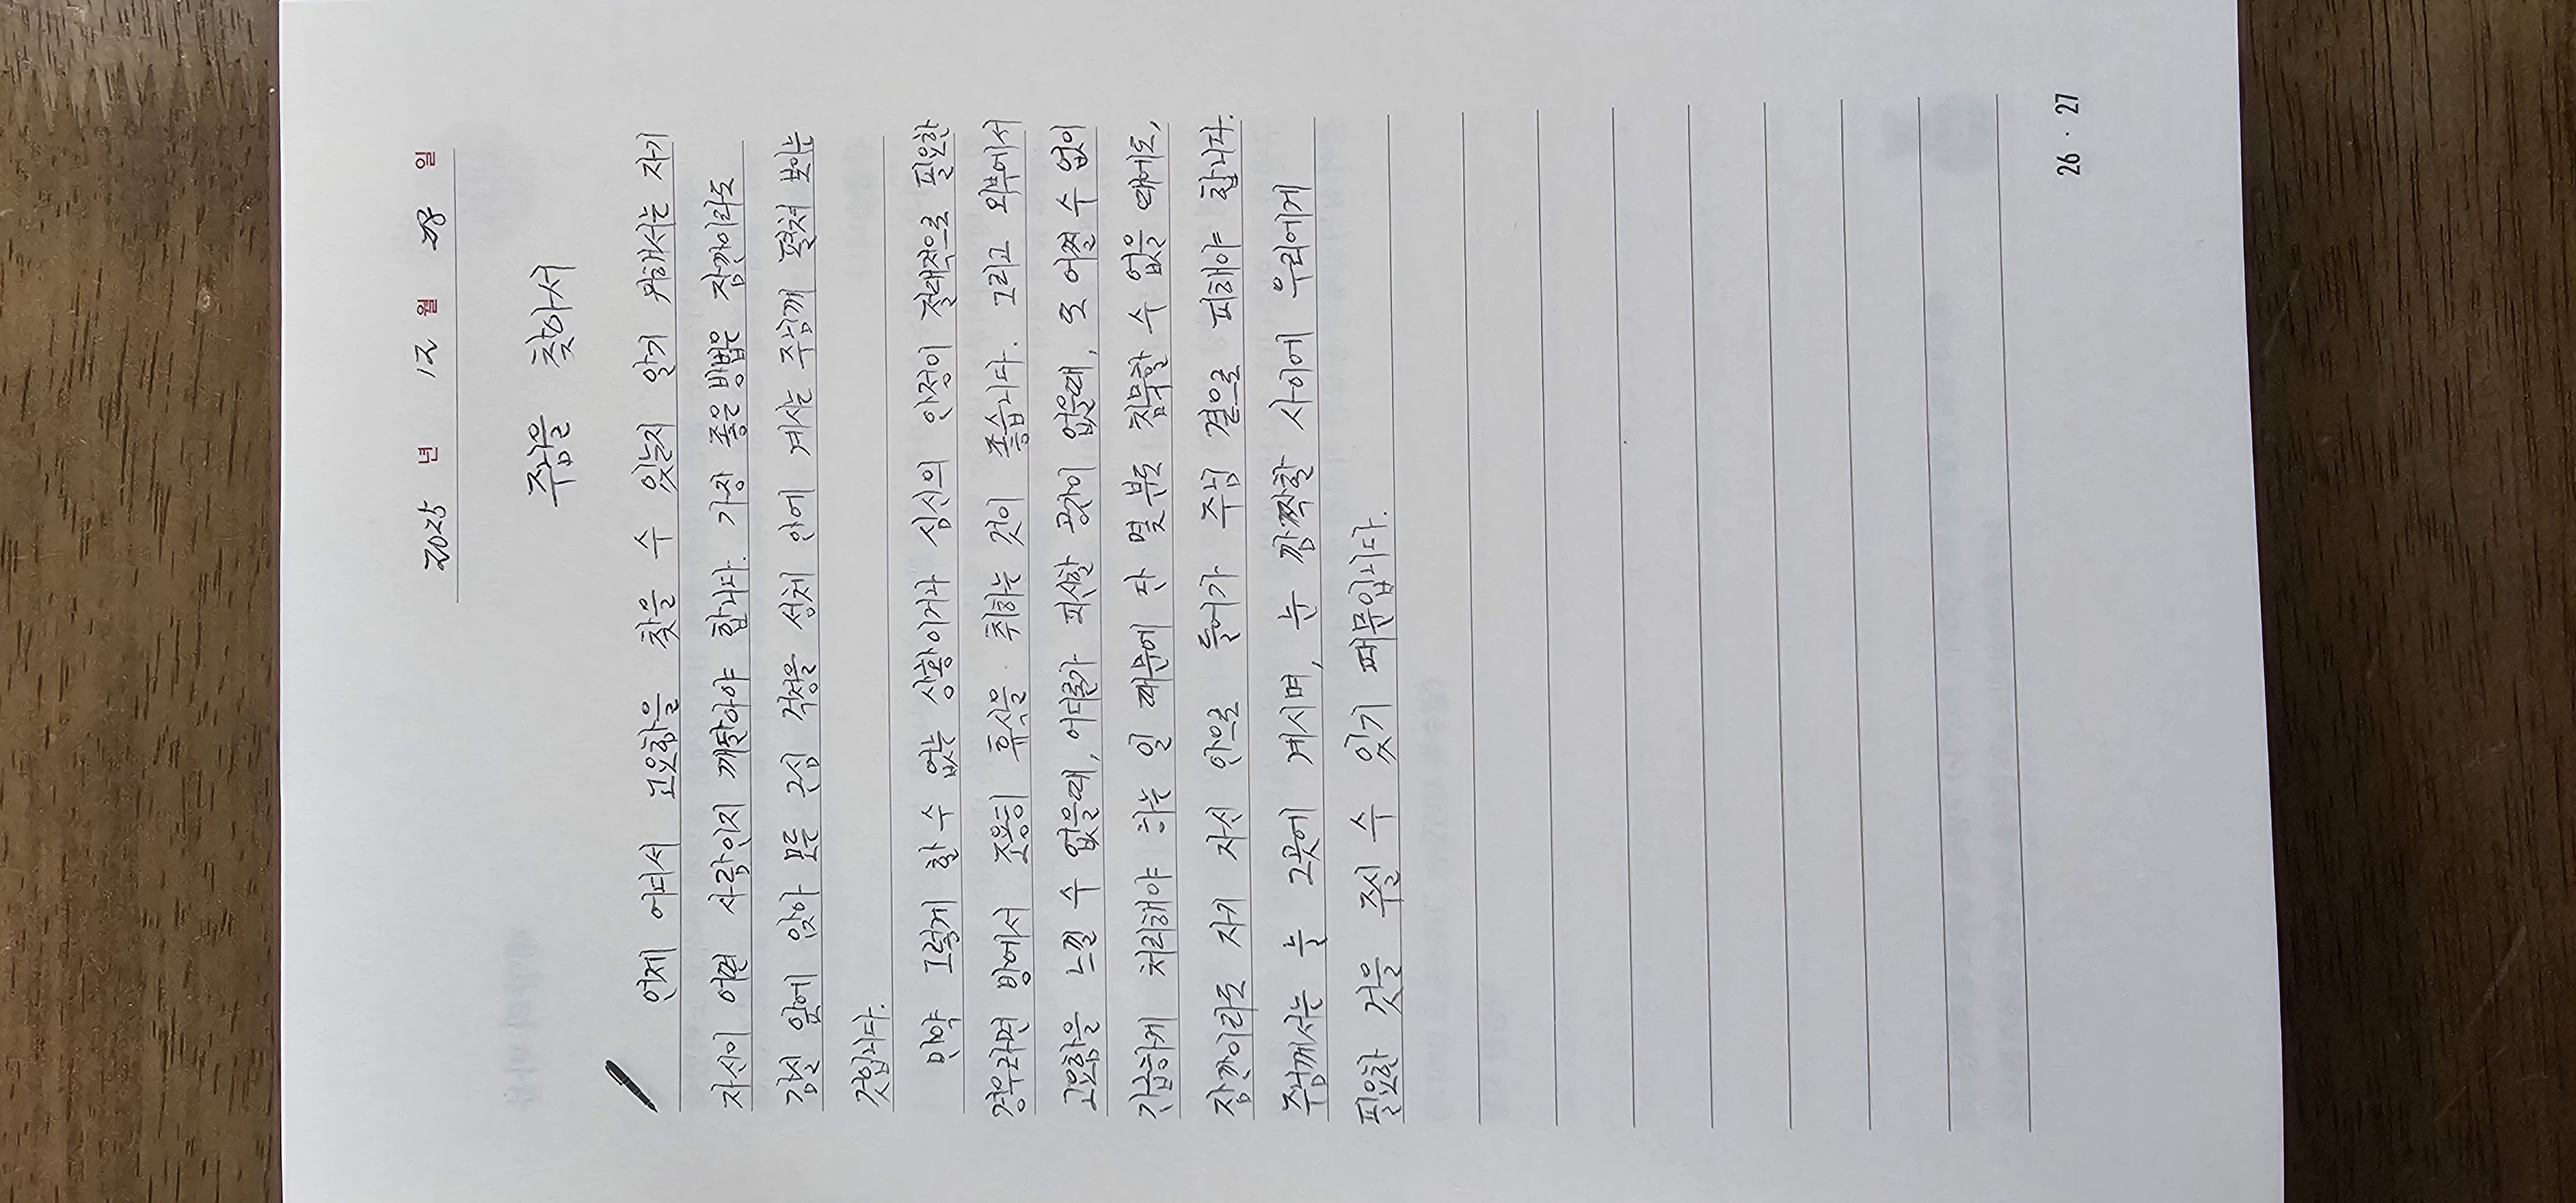 2025 년 12 월 일
주님을 찾아서
언제 어디서 고요함을 찾을 수 있는지 알기 위해서는 자기
자신이 어떤 사람인지 깨달아야 합니다. 가장 좋은 방법은 잠깐이라도
감실 앞에 앉아 모든 근심 걱정을 성체 안에 계시는 주님께 펼쳐 보이는
것입니다.
만약 그렇게 할 수 없는 상황이거나 심신의 안정이 절대적으로 필요한
경우라면 방에서 조용히 휴식을 취하는 것이 좋습니다. 그리고 외부에서
고요함을 느낄 수 없을때, 어디론가 피신할 곳이 없을때, 또 어쩔 수 없이
간급하게 처리해야 하는 일 때문에 단 몇분도 침묵할 수 없을 때에도,
잠깐이라도 자기 자신 안으로 들어가 주님 곁으로 피해야 합니다.
주님께서는 늘 그곳에 계시며, 눈 깜짝할 사이에 우리에게
필요한 것을 주실 수 있기 때문입니다.
26 · 27